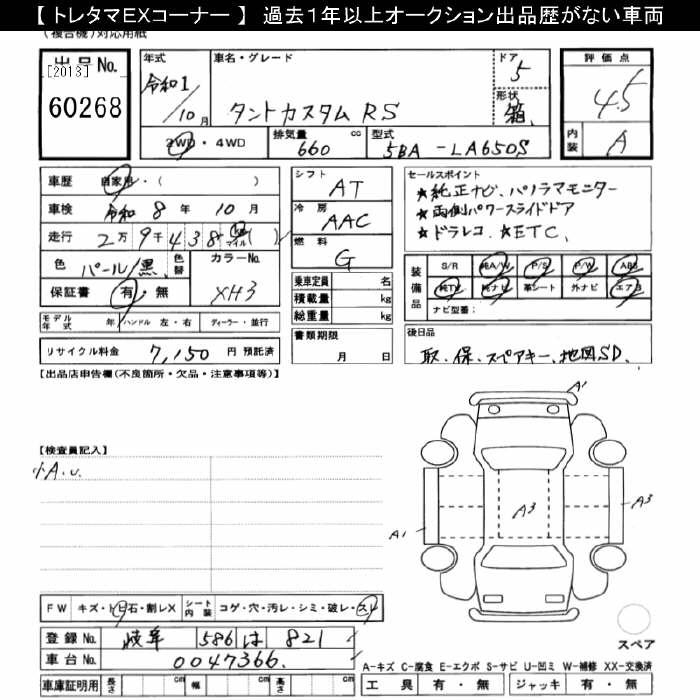 【トレタマEXコーナー】 過去1年以上オークション出品歴がない車両
(複合機)対応用紙
出品No.
[2013]
60268
年式
令和1/10月
車名・グレード
タントカスタムRS
ドア
5
形状
箱
2WD・4WD
排気量 660 cc
型式 5BA-LA650S
評価点
4.5
内装 A
車歴 自家用・( )
車検 令和 8年 10月
走行 2万9千438 km マイル ( )
色 パール/黒 色替
カラーNo. XH3
保証書 有・無
モデル年式 年 ハンドル 左・右 ディーラー・並行
リサイクル料金 7,150 円 預託済
シフト AT
冷房 AAC
燃料 G
乗車定員 名
積載量 kg
総重量 kg
書類期限
月 日
セールスポイント
★純正ナビ、パノラマモニター
★両側パワースライドドア
★ドラレコ ★ETC、
装備品
S/R 純A/W P/S P/W ABS
純TV 純ナビ 革シート 外ナビ エアB
ナビ型番:
後日品
取、保、スペアキー、地図SD、
【出品店申告欄(不良箇所・欠品・注意事項等)】
【検査員記入】
小A.U.
A1
A3
A1
A3
FW キズ・トビ石・割レX
シート内装 コゲ・穴・汚レ・シミ・破レ・スレ
登録No. 岐阜 586 は 821
車台No. 0047366.
車庫証明用 長さ cm 幅 cm 高さ cm
スペア
A-キズ C-腐食 E-エクボ S-サビ U-凹ミ W-補修 XX-交換済
工具 有・無 ジャッキ 有・無